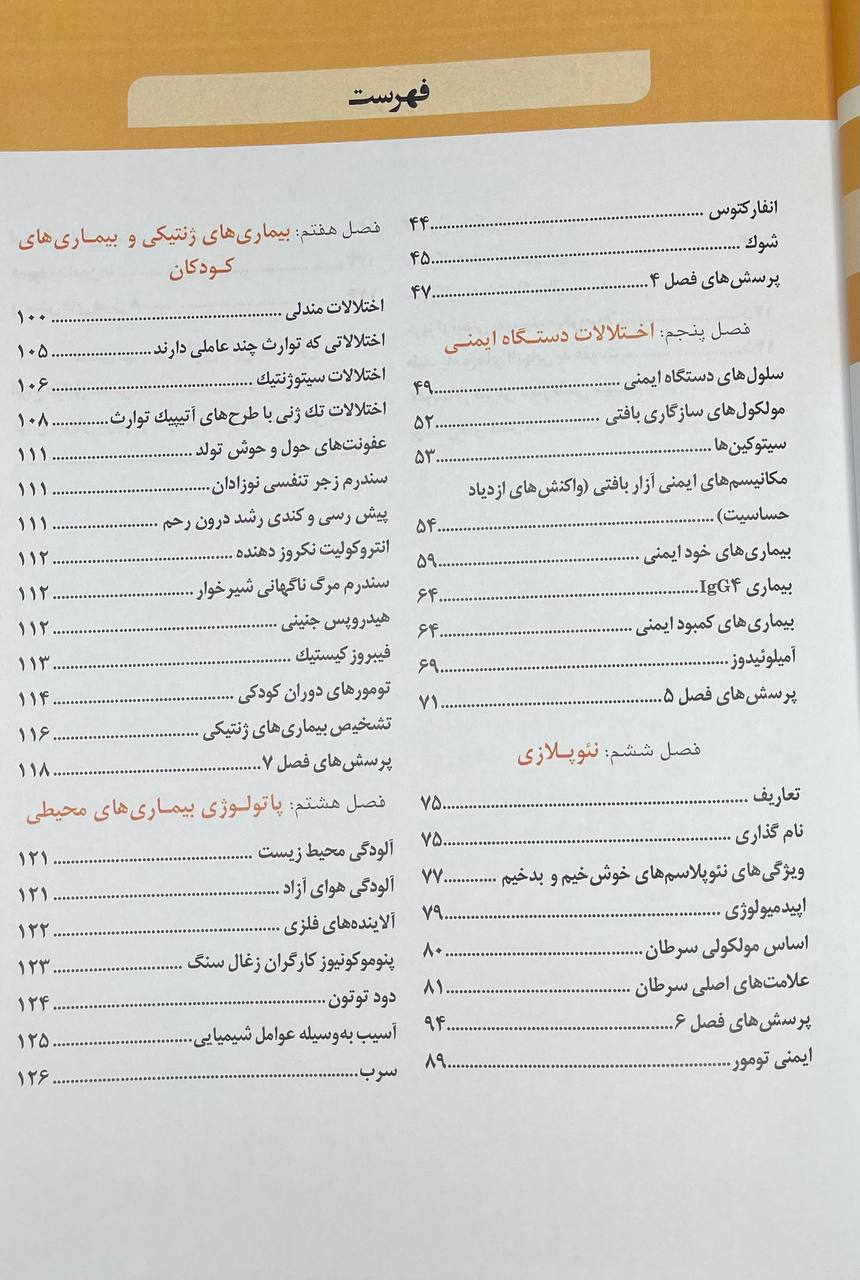 فهرست
انفارکتوس ........................................ ۴۴
شوك ........................................ ۴۵
پرسش‌های فصل ۴ ........................................ ۴۷
فصل پنجم: اختلالات دستگاه ایمنی
سلول‌های دستگاه ایمنی ........................................ ۴۹
مولکول‌های سازگاری بافتی ........................................ ۵۲
سیتوکین‌ها ........................................ ۵۳
مکانیسم‌های ایمنی آزار بافتی (واکنش‌های ازدیاد
حساسیت) ........................................ ۵۴
بیماری‌های خود ایمنی ........................................ ۵۹
بیماری IgG۴ ........................................ ۶۴
بیماری‌های کمبود ایمنی ........................................ ۶۴
آمیلوئیدوز ........................................ ۶۹
پرسش‌های فصل ۵ ........................................ ۷۱
فصل ششم: نئوپلازی
تعاریف ........................................ ۷۵
نام گذاری ........................................ ۷۵
ویژگی‌های نئوپلاسم‌های خوش‌خیم و بدخیم ............ ۷۷
اپیدمیولوژی ........................................ ۷۹
اساس مولکولی سرطان ........................................ ۸۰
علامت‌های اصلی سرطان ........................................ ۸۱
پرسش‌های فصل ۶ ........................................ ۹۴
ایمنی تومور ........................................ ۸۹
فصل هفتم: بیماری‌های ژنتیکی و بیماری‌های
کودکان
اختلالات مندلی ........................................ ۱۰۰
اختلالاتی که توارث چند عاملی دارند ........................ ۱۰۵
اختلالات سیتوژنتیك ........................................ ۱۰۶
اختلالات تك ژنی با طرح‌های آتیپیك توارث ............. ۱۰۸
عفونت‌های حول و حوش تولد ............................ ۱۱۱
سندرم زجر تنفسی نوزادان ................................ ۱۱۱
پیش رسی و کندی رشد درون رحم ........................ ۱۱۱
انتروکولیت نکروز دهنده ................................ ۱۱۲
سندرم مرگ ناگهانی شیرخوار ............................ ۱۱۲
هیدروپس جنینی ........................................ ۱۱۲
فیبروز کیستیك ........................................ ۱۱۳
تومورهای دوران کودکی ................................ ۱۱۴
تشخیص بیماری‌های ژنتیکی ............................ ۱۱۶
پرسش‌های فصل ۷ ........................................ ۱۱۸
فصل هشتم: پاتولوژی بیماری‌های محیطی
آلودگی محیط زیست ........................................ ۱۲۱
آلودگی هوای آزاد ........................................ ۱۲۱
آلاینده‌های فلزی ........................................ ۱۲۲
پنوموکونیوز کارگران زغال سنگ ........................ ۱۲۳
دود توتون ........................................ ۱۲۴
آسیب به‌وسیله عوامل شیمیایی ........................ ۱۲۵
سرب ........................................ ۱۲۶